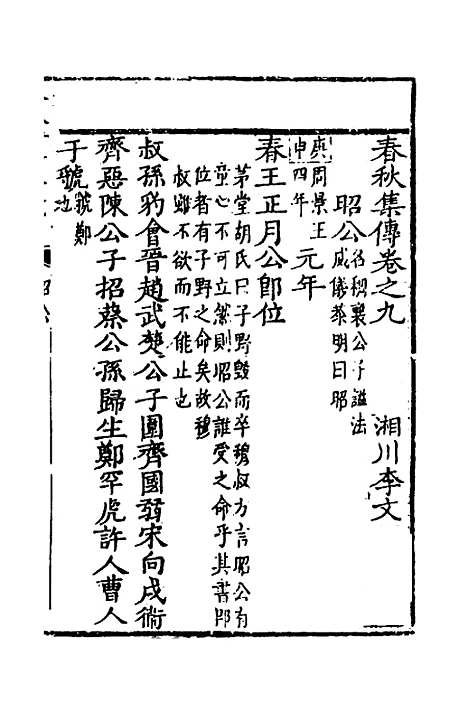 春秋集傳卷之九　湘川李文
昭公名稠襄公子謚法
威儀恭明曰昭
庚申周景王四年
元年
春王正月公卽位
茅堂胡氏曰子野毀而卒穆叔方言昭公有
童心不可立然則昭公誰受之命乎其書卽
位者有子野之命矣故穆
叔雖不欲而不能止也
叔孫豹會晉趙武楚公子圍齊國弱宋向戌衞
齊惡陳公子招蔡公孫歸生鄭罕虎許人曹人
于虢虢鄭
地